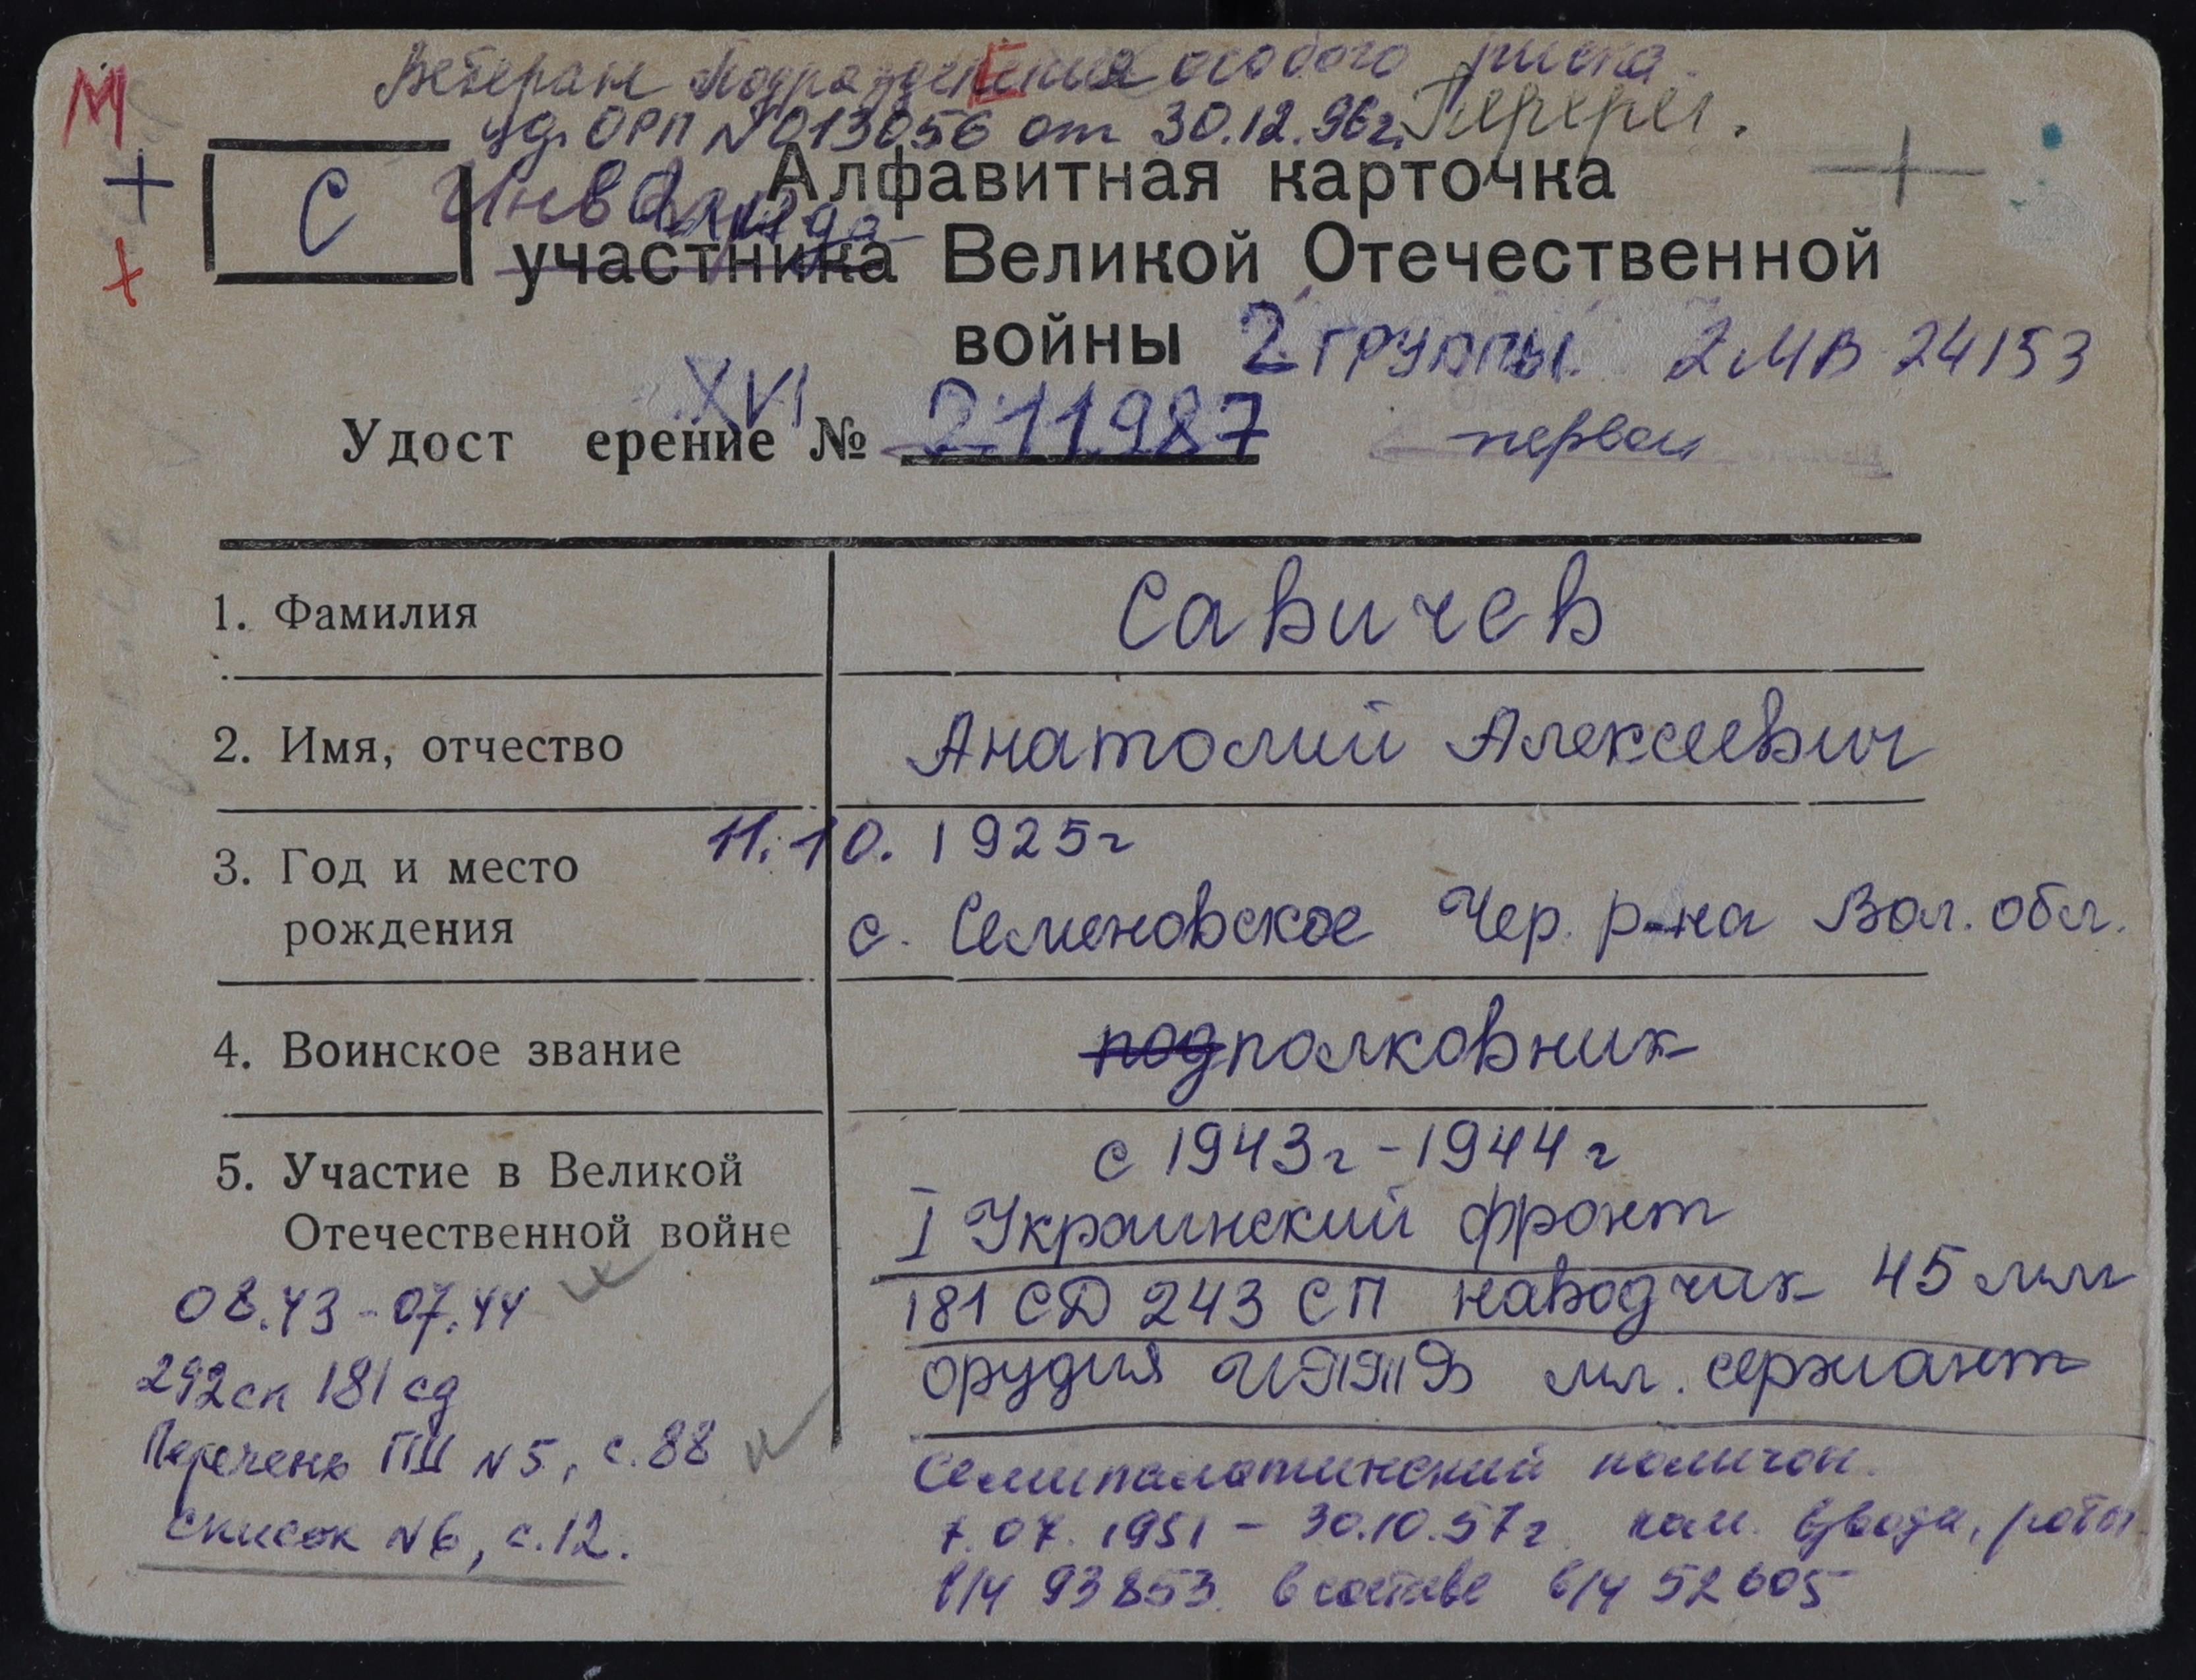 Ветеран Подразделения особого риска.
уд. ОРП №013056 от 30.12.96г. Перерег.
М
С
Инвалида
Алфавитная карточка
участника Великой Отечественной
войны 2 группы 2МВ 24153
XVI
Удост ерение № 211987 первой
1. Фамилия Савичев
2. Имя, отчество Анатолий Алексеевич
11.10.1925г
3. Год и место
рождения с. Семеновское Чер. р-на Вол. обл.
4. Воинское звание подполковник
5. Участие в Великой с 1943г - 1944г
Отечественной войне I Украинский фронт
08.43 - 07.44 181 СД 243 СП наводчик 45 мм
292 сп 181 сд орудия мл. сержант
Перечень ГШ №5, с.88 Семипалатинский полигон.
Список №6, с.12. 7.07.1951 - 30.10.57г. ком. взвода, роты
в/ч 93853 в составе в/ч 52605